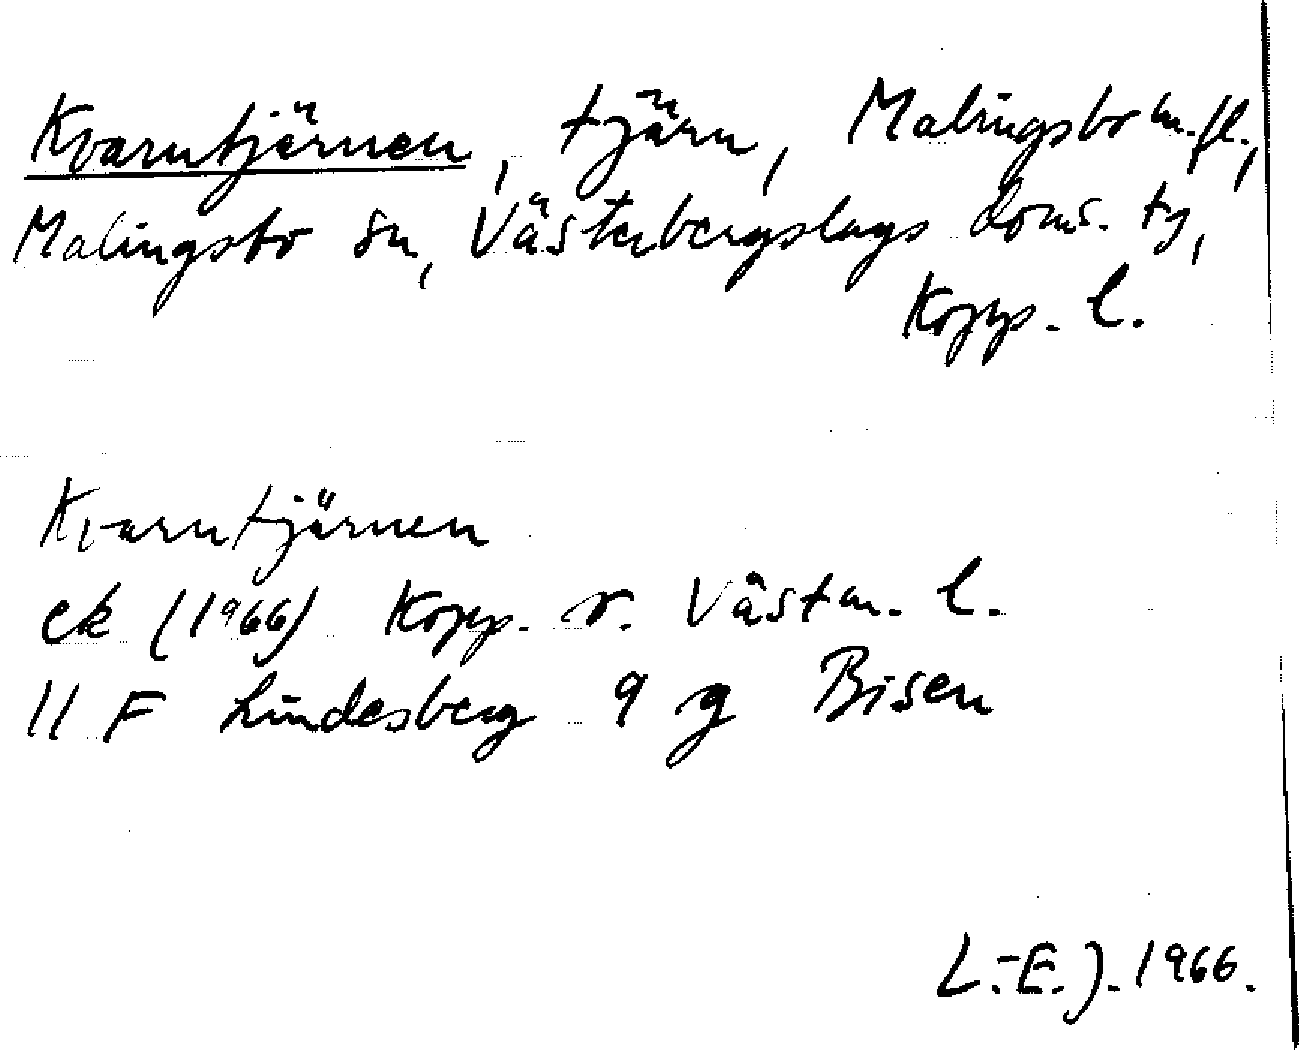 Kvarntjärnen, tjärn, Malingsbo m.fl.,
Malingsbo sn, Västerbergslags doms. tg,
Kopp. l.
Kvarntjärnen
ek (1966) Kopp. o. Västm. l.
11 F Lindesberg 9 g Bisen
L.-E. J. 1966.